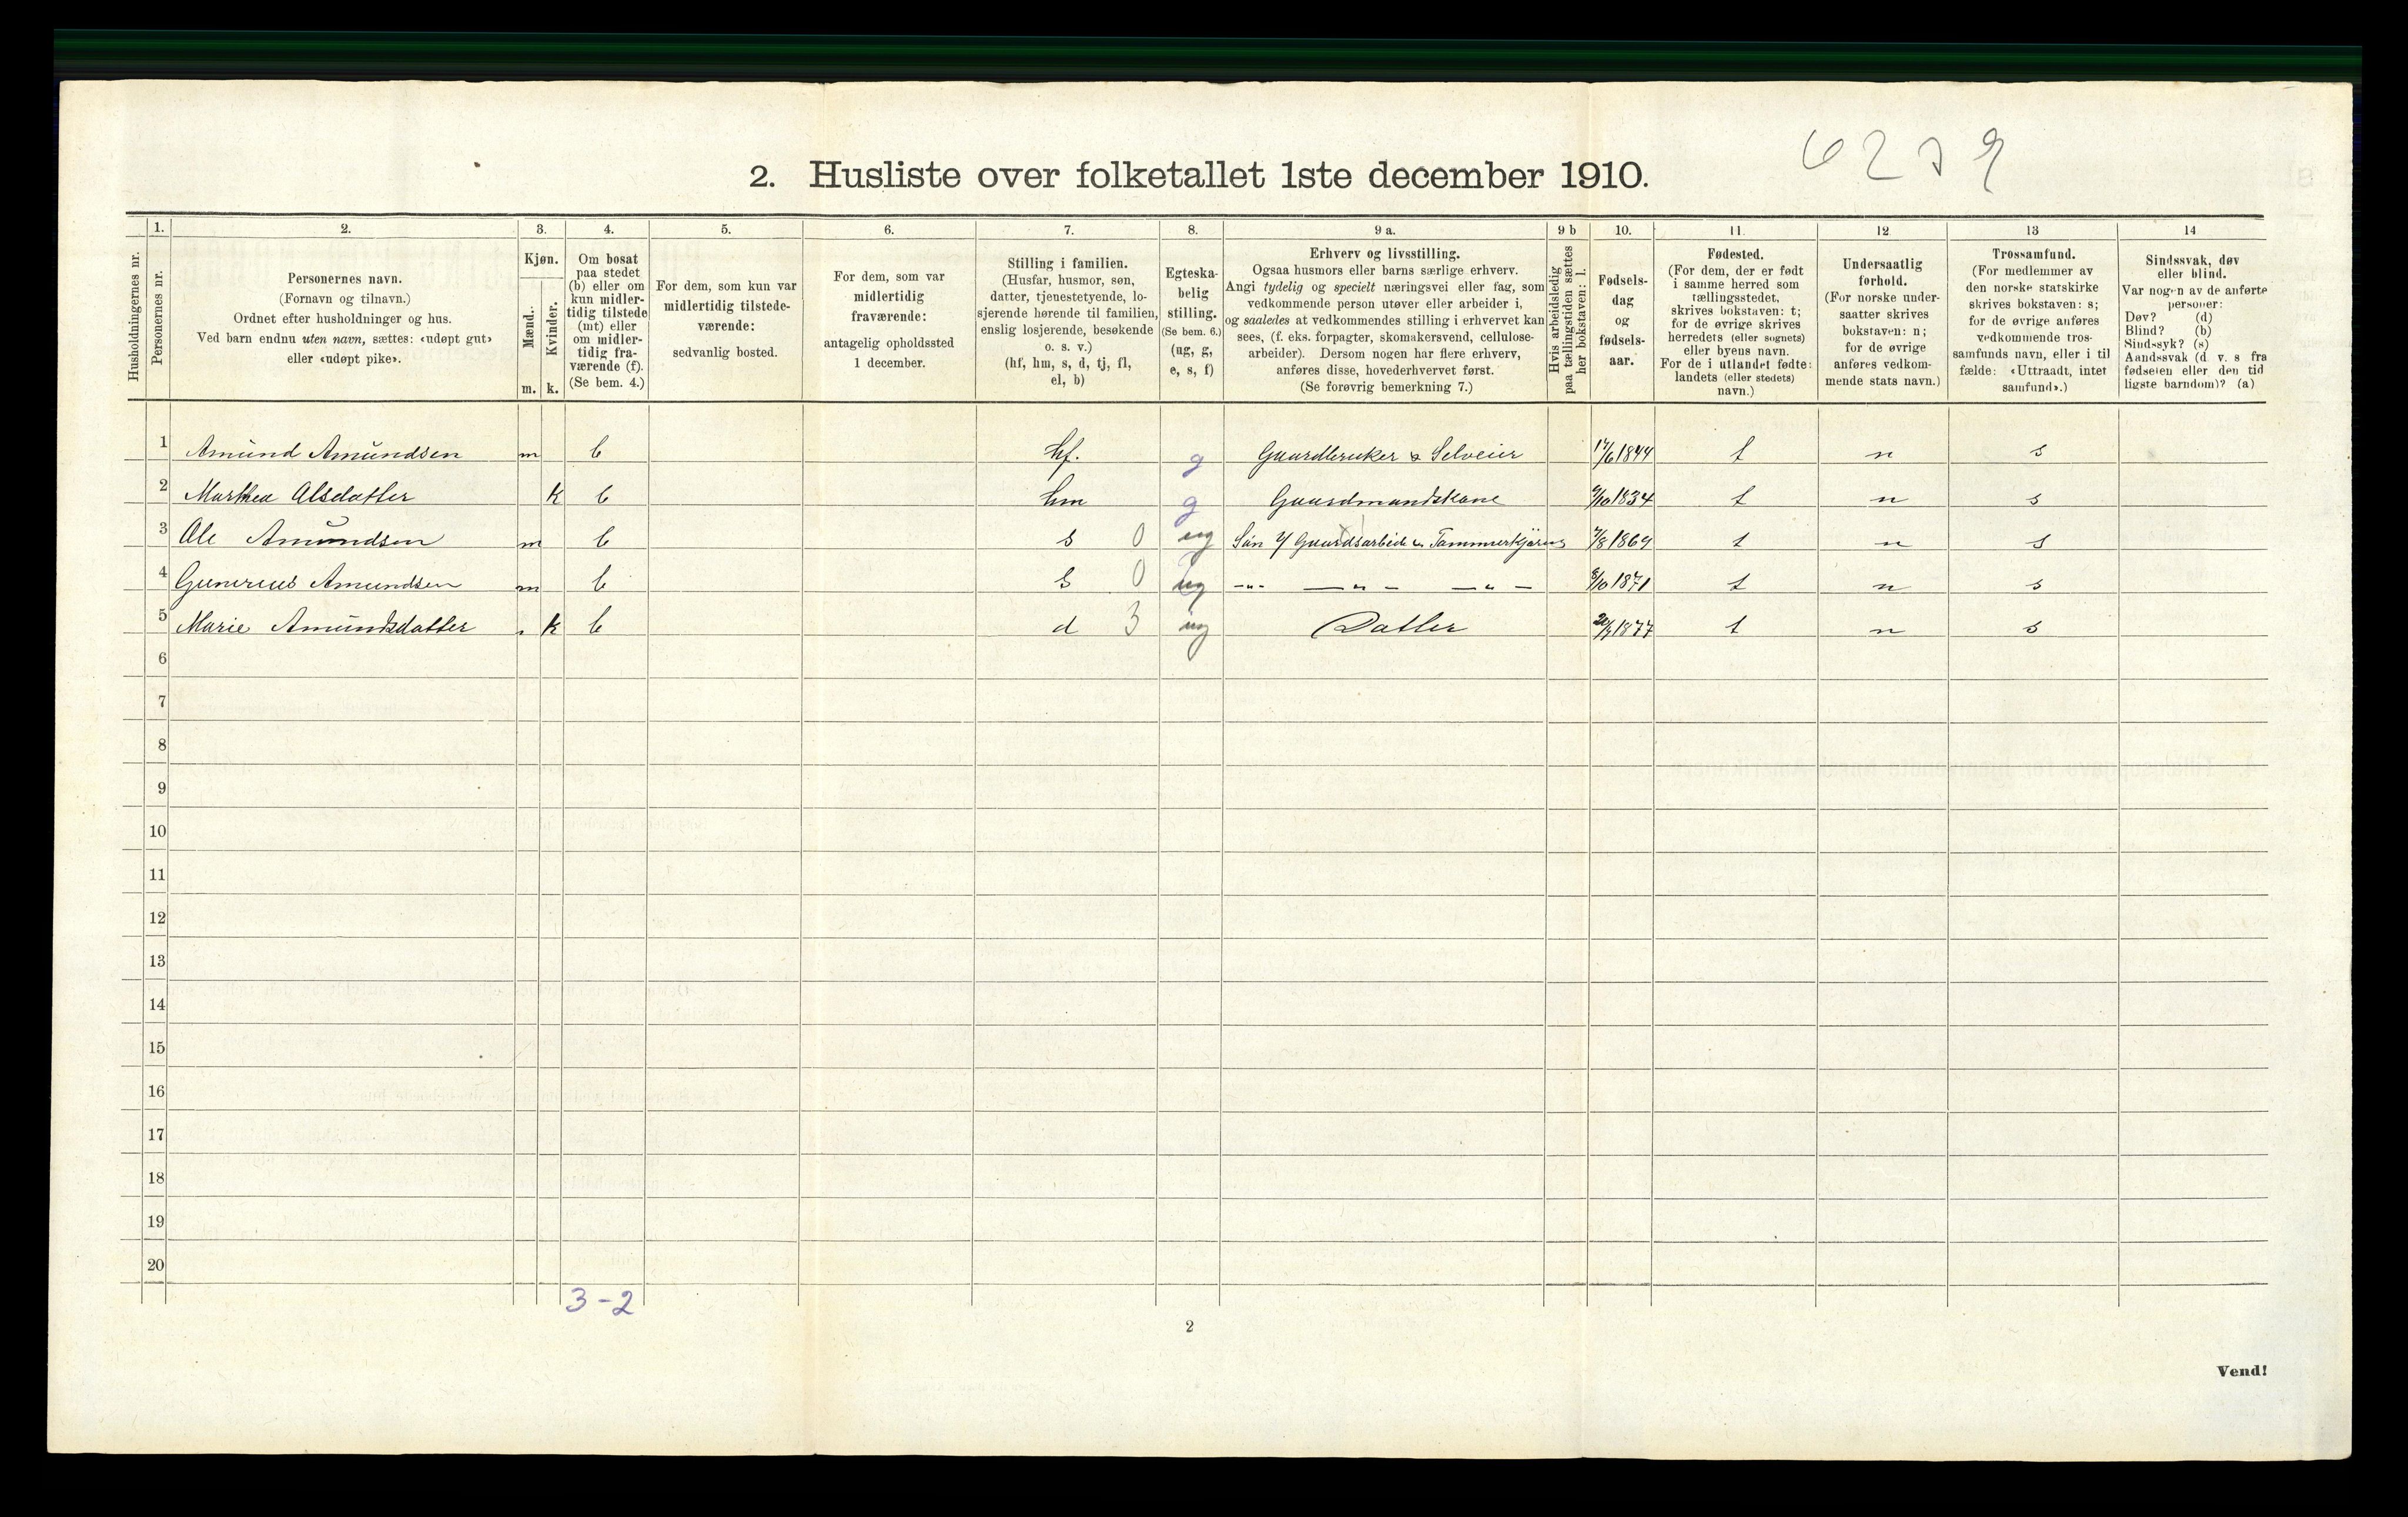 6239
2. Husliste over folketallet 1ste december 1910.
Husholdningernes nr.
1.
Personernes nr.
2.
Personernes navn.
(Fornavn og tilnavn.)
Ordnet efter husholdninger og hus.
Ved barn endnu uten navn, sættes: «udøpt gut»
eller «udøpt pike».
3.
Kjøn.
Mænd.
Kvinder.
m. k.
4.
Om bosat
paa stedet
(b) eller om
kun midler-
tidig tilstede
(mt) eller
om midler-
tidig fra-
værende (f).
(Se bem. 4.)
5.
For dem, som kun var
midlertidig tilstede-
værende:
sedvanlig bosted.
6.
For dem, som var
midlertidig
fraværende:
antagelig opholdssted
1 december.
7.
Stilling i familien.
(Husfar, husmor, søn,
datter, tjenestetyende, lo-
sjerende hørende til familien,
enslig losjerende, besøkende
o. s. v.)
(hf, hm, s, d, tj, fl,
el, b)
8.
Egteska-
belig
stilling.
(Se bem. 6.)
(ug, g,
e, s, f)
9 a.
Erhverv og livsstilling.
Ogsaa husmors eller barns særlige erhverv.
Angi tydelig og specielt næringsvei eller fag, som
vedkommende person utøver eller arbeider i,
og saaledes at vedkommendes stilling i erhvervet kan
sees, (f. eks. forpagter, skomakersvend, cellulose-
arbeider). Dersom nogen har flere erhverv,
anføres disse, hovederhvervet først.
(Se forøvrig bemerkning 7.)
9 b
Hvis arbeidsledig
paa tællingstiden sættes
her bokstaven: l.
10.
Fødsels-
dag
og
fødsels-
aar.
11.
Fødested.
(For dem, der er født
i samme herred som
tællingsstedet,
skrives bokstaven: t;
for de øvrige skrives
herredets (eller sognets)
eller byens navn.
For de i utlandet fødte:
landets (eller stedets)
navn.)
12.
Undersaatlig
forhold.
(For norske under-
saatter skrives
bokstaven: n;
for de øvrige
anføres vedkom-
mende stats navn.)
13
Trossamfund.
(For medlemmer av
den norske statskirke
skrives bokstaven: s;
for de øvrige anføres
vedkommende tros-
samfunds navn, eller i til
fælde: «Uttraadt, intet
samfund».)
14
Sindssvak, døv
eller blind.
Var nogen av de anførte
personer:
Døv? (d)
Blind? (b)
Sindssyk? (s)
Aandssvak (d. v. s. fra
fødselen eller den tid
ligste barndom)? (a)
1 Amund Amundsen m b hf. g Gaardbruker & Selveier 17/6 1844 t n s
2 Marthea Olsdatter k b hm g Gaardmandskone 9/10 1834 t n s
3 Ole Amundsen m b s 0 ug Søn Gaardsarbeide Tømmerkjøring 7/8 1869 t n s
4 Gunerius Amundsen m b s 0 ug -"- -"- -"- 8/10 1871 t n s
5 Marie Amundsdatter k b d 3 ug Datter 1877 t n s
6
7
8
9
10
11
12
13
14
15
16
17
18
19
20
3-2
2
Vend!